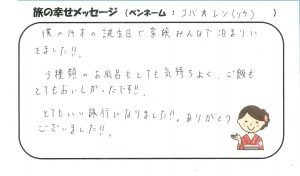 旅の幸せメッセージ (ペンネーム:フバオレン(リウ) )
僕の14才の誕生日で家族みんなで泊まりに
きました!!
3種類のお風呂もとても気持ちよく、ご飯も
とてもおいしかったです!!
とてもいい旅行になりました!!。ありがとう
ございました!!。